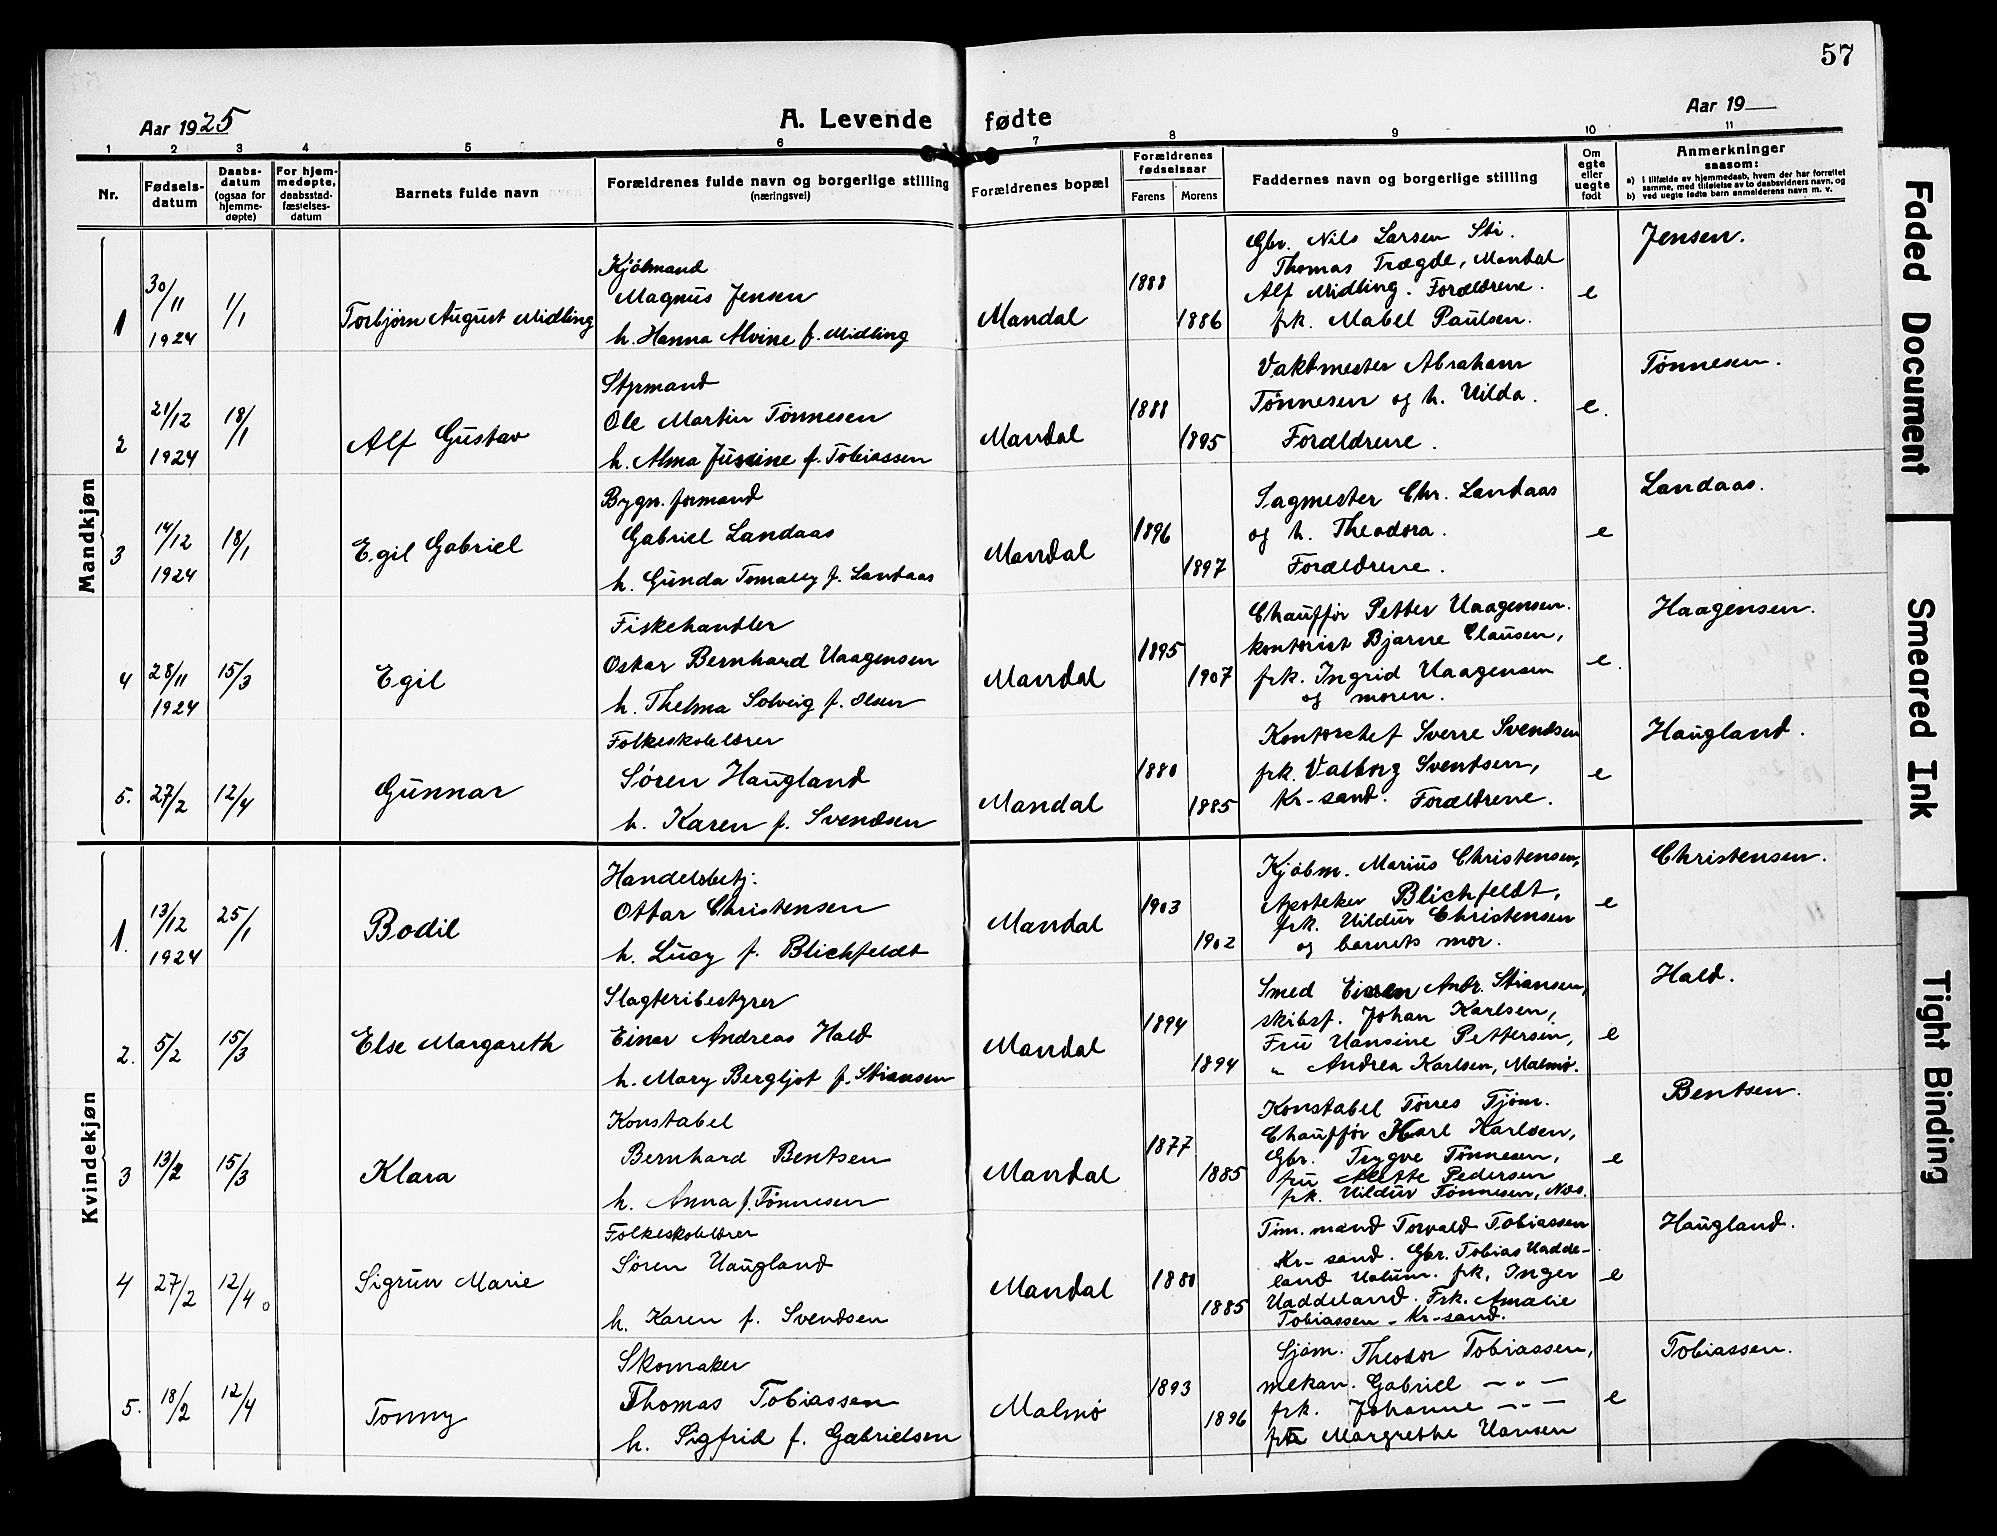 57
Aar 1925
A. Levende fødte
Aar 19
1 2 3 4 5 6 7 8 9 10 11
Nr.
Fødsels-
datum
Daabs-
datum
(ogsaa for
hjemme-
døpte)
For hjem-
medøpte,
daabsstad-
fæstelses-
datum
Barnets fulde navn
Forældrenes fulde navn og borgerlige stilling
(næringsvei)
Forældrenes bopæl
Forældrenes
fødselsaar
Farens Morens
Faddernes navn og borgerlige stilling
Om
egte
eller
uegte
født
Anmerkninger
saasom:
a) i tilfælde av hjemmedaab, hvem der har forrettet
samme, med tilføielse av to daabsvidners navn, og
b) ved uegte fødte barn anmelderens navn m. v.
Mandkjøn
1
30/11
1924
1/1
Torbjørn August Midling
Kjøbmand
Magnus Jensen
h. Hanna Alvine f. Midling
Mandal
1888
1886
Gbr. Nils Larsen Sti.
Thomas Trægde, Mandal
Alf Midling. Forældrene.
frk. Mabel Paulsen.
e
Jensen.
2
21/12
1924
18/1
Alf Gustav
Styrmand
Ole Martin Tønnesen
h. Alma Jusine f. Tobiassen
Mandal
1888
1895
Vaktmester Abraham
Tønnesen og h. Hilda.
Forældrene.
e.
Tønnesen.
3
14/12
1924
18/1
Egil Gabriel
Bygn. formand
Gabriel Landaas
h. Gunda Tomally f. Landaas
Mandal
1896
1897
Sagmester Chr. Landaas
og h. Theodora.
Forældrene.
e
Landaas.
4
28/11
1924
15/3
Egil
Fiskehandler
Oskar Bernhard Haagensen
h. Thelma Solveig f. Olsen
Mandal
1895
1907
Chauffør Petter Haagensen.
kontorist Bjarne Clausen,
frk. Ingrid Haagensen
og moren.
e.
Haagensen.
5.
27/2
12/4
Gunnar
Folkeskolelærer
Søren Haugland
h. Karen f. Svendsen
Mandal
1880
1885
Kontorchef Sverre Svendsen
frk. Valborg Svendsen,
Kr-sand. Forældrene.
e
Haugland.
Kvindekjøn
1.
13/12
1924
25/1
Bodil
Handelsbetj.
Ottar Christensen
h. Lucy f. Blichfeldt
Mandal
1903
1902
Kjøbm. Marius Christensen,
Apoteker Blichfeldt,
frk. Hildur Christensen
og barnets mor.
e
Christensen.
2.
5/2
15/3
Else Margareth
Slagteribestyrer
Einar Andreas Hald
h. Mary Bergljot f. Stiansen
Mandal
1894
1894
Smed Andr. Stiansen,
skibsf. Johan Karlsen,
Fru Hansine Pettersen,
" Andrea Karlsen, Malmø.
e
Hald.
3
13/2
15/3
Klara
Konstabel
Bernhard Bentsen
h. Anna f. Tønnesen
Mandal
1877
1885
Konstabel Torres Tjøm.
Chauffør Karl Karlsen,
Gbr. Trygve Tønnesen,
fru Mette Pedersen
frk. Hildur Tønnesen, Næs.
e
Bentsen.
4
27/2
12/4
Sigrun Marie
Folkeskolelærer
Søren Haugland
h. Karen f. Svendsen
Mandal
1880
1885
Tøm. mand Torvald Tobiassen
Kr-sand. Gbr. Tobias Hadde-
land Holum. frk. Inger
Haddeland. Frk. Amalie
Tobiassen - Kr-sand.
e
Haugland.
5.
18/2
12/4
Tonny
Skomaker
Thomas Tobiassen
h. Sigfrid f. Gabrielsen
Malmø
1893
1896
Sjøm. Theodor Tobiassen,
mekan. Gabriel — " —
frk. Johanne — " —
fru Margrethe Hansen
e
Tobiassen.
Faded Document
Smeared Ink
Tight Binding